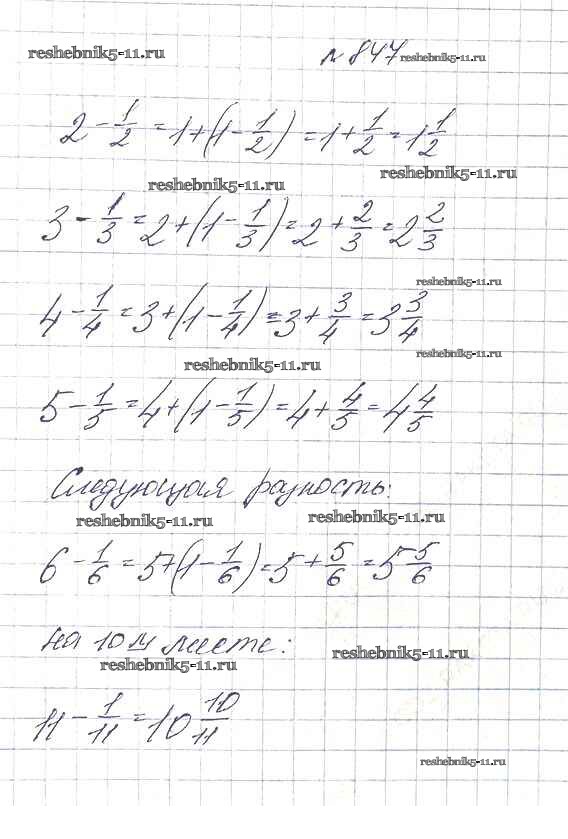 reshebnik5-11.ru
№ 847 reshebnik5-11.ru
2 - 1/2 = 1 + (1 - 1/2) = 1 + 1/2 = 1 1/2
reshebnik5-11.ru
reshebnik5-11.ru
3 - 1/3 = 2 + (1 - 1/3) = 2 + 2/3 = 2 2/3
reshebnik5-11.ru
4 - 1/4 = 3 + (1 - 1/4) = 3 + 3/4 = 3 3/4
reshebnik5-11.ru
reshebnik5-11.ru
5 - 1/5 = 4 + (1 - 1/5) = 4 + 4/5 = 4 4/5
Следующая разность:
reshebnik5-11.ru reshebnik5-11.ru
6 - 1/6 = 5 + (1 - 1/6) = 5 + 5/6 = 5 5/6
на 10 м месте:
reshebnik5-11.ru reshebnik5-11.ru
11 - 1/11 = 10 10/11
reshebnik5-11.ru